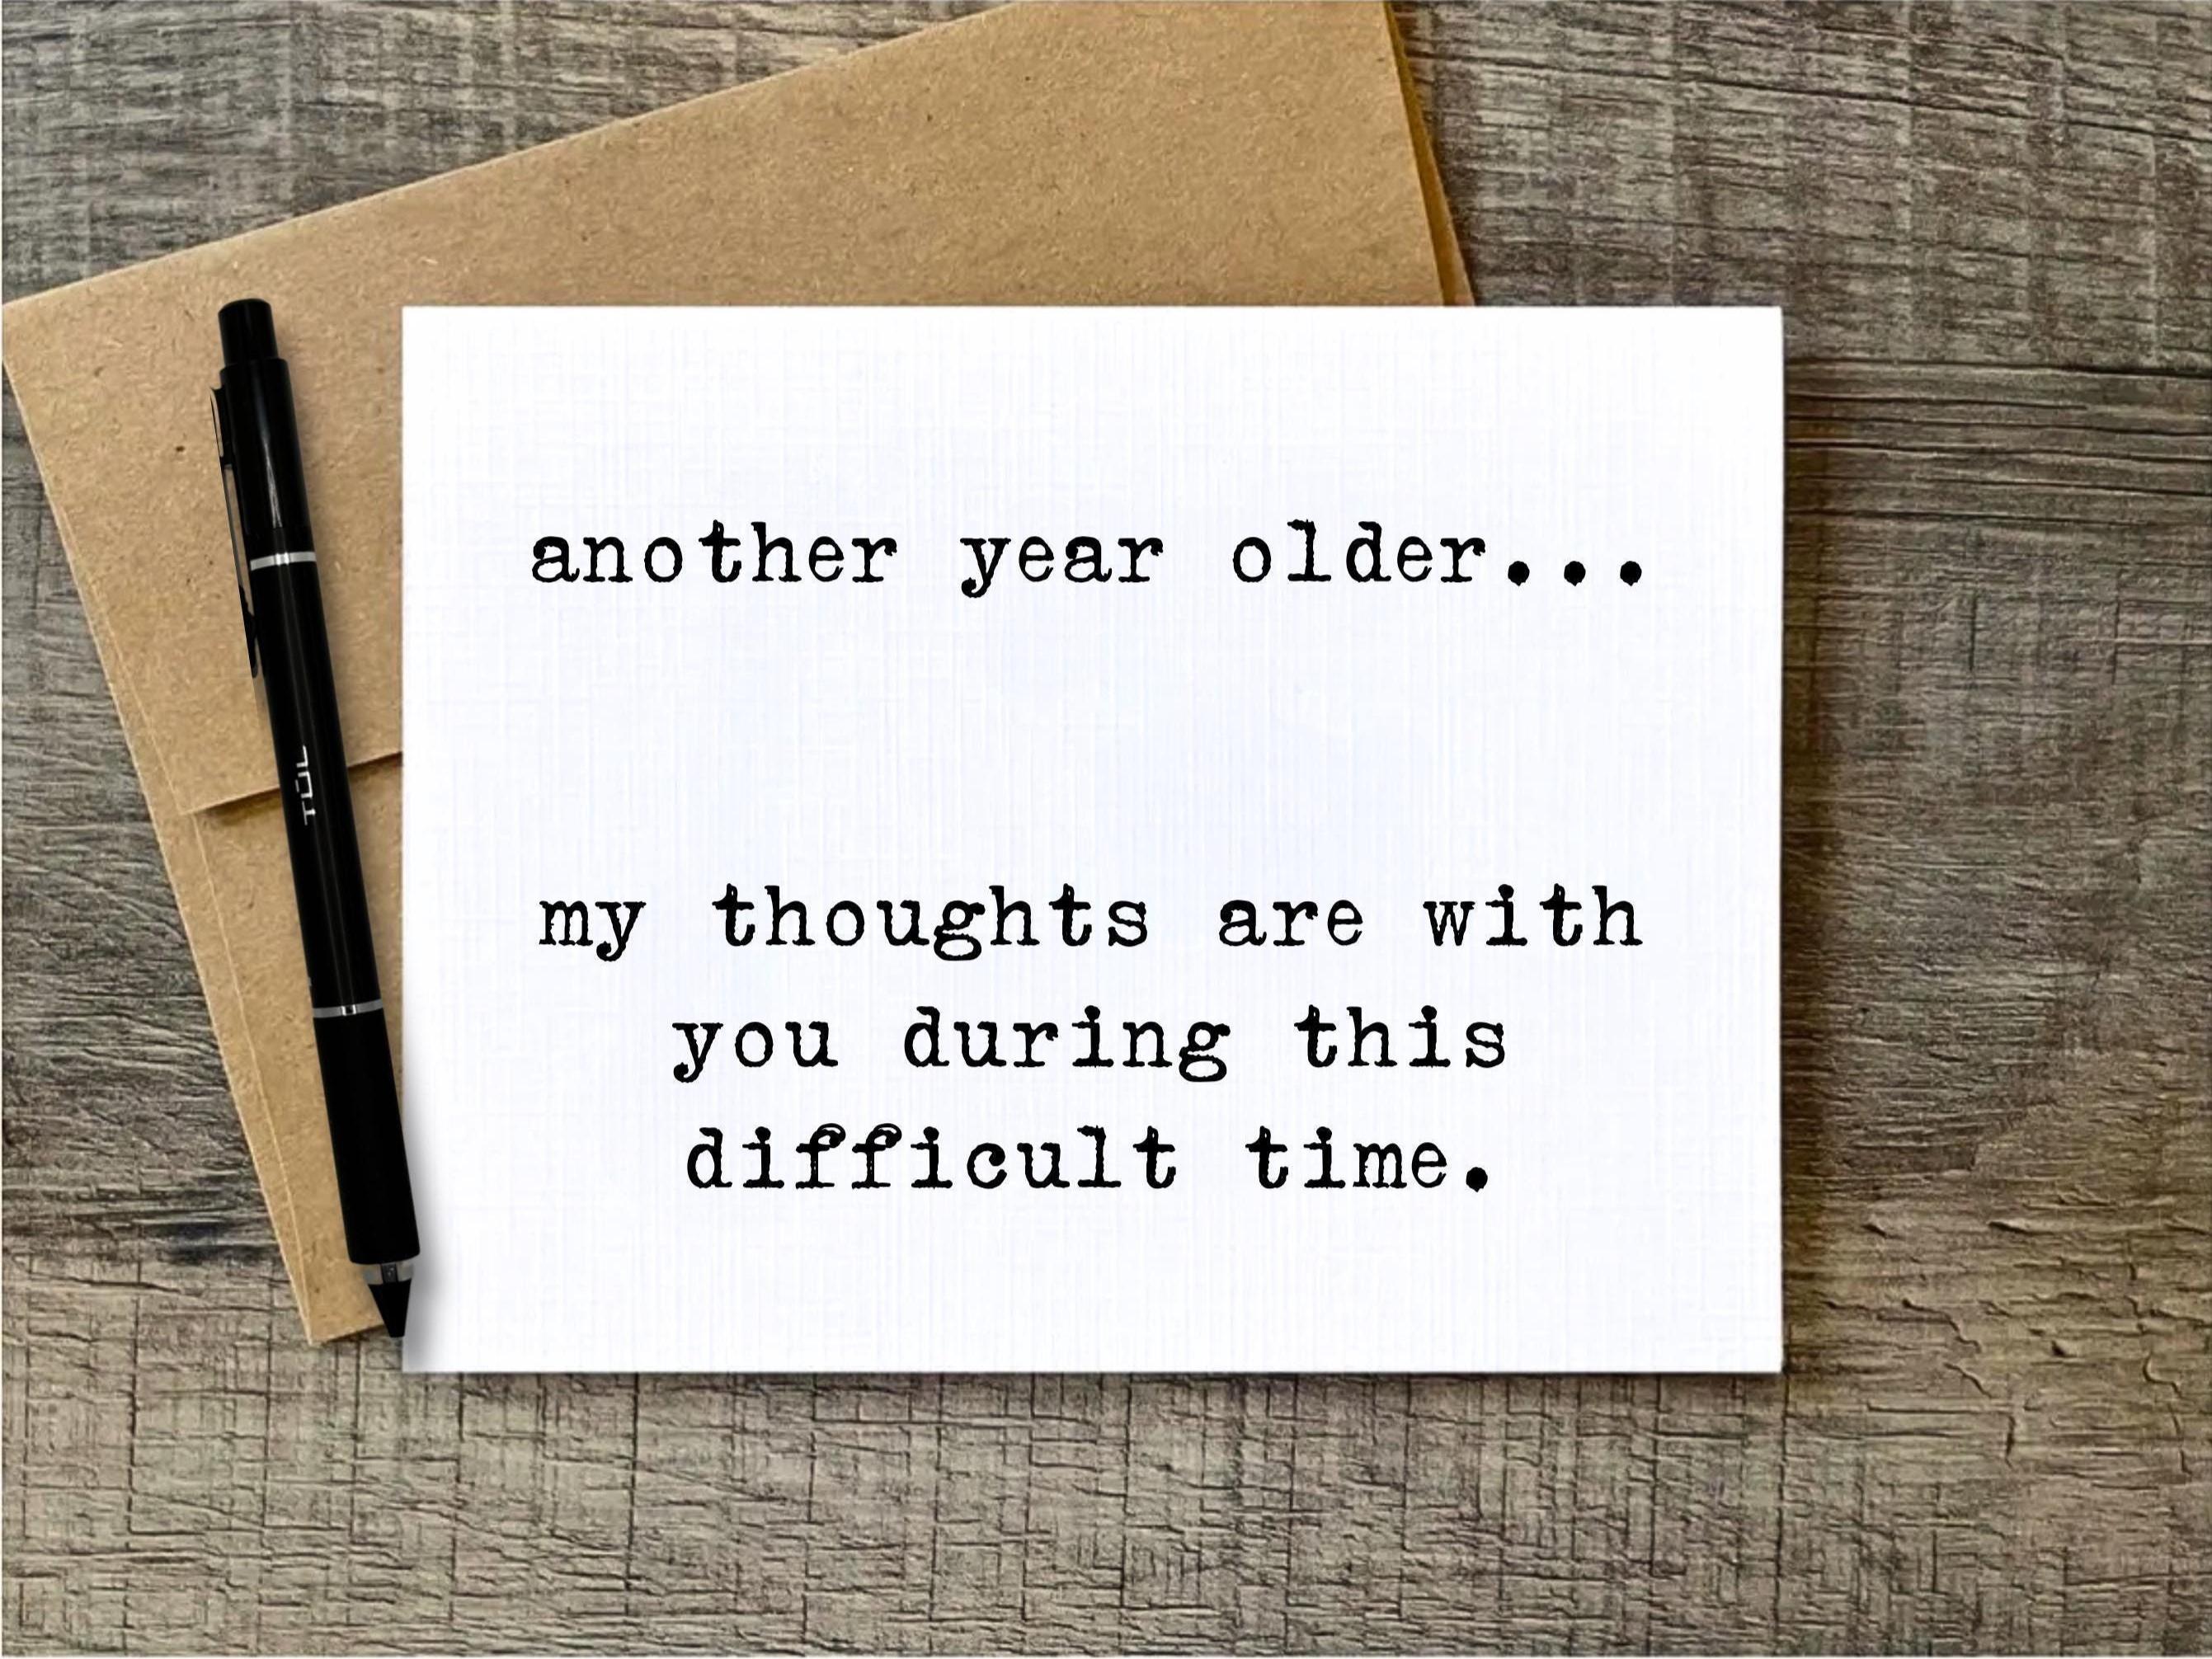 another year older...
my thoughts are with
you during this
difficult time.
TUL